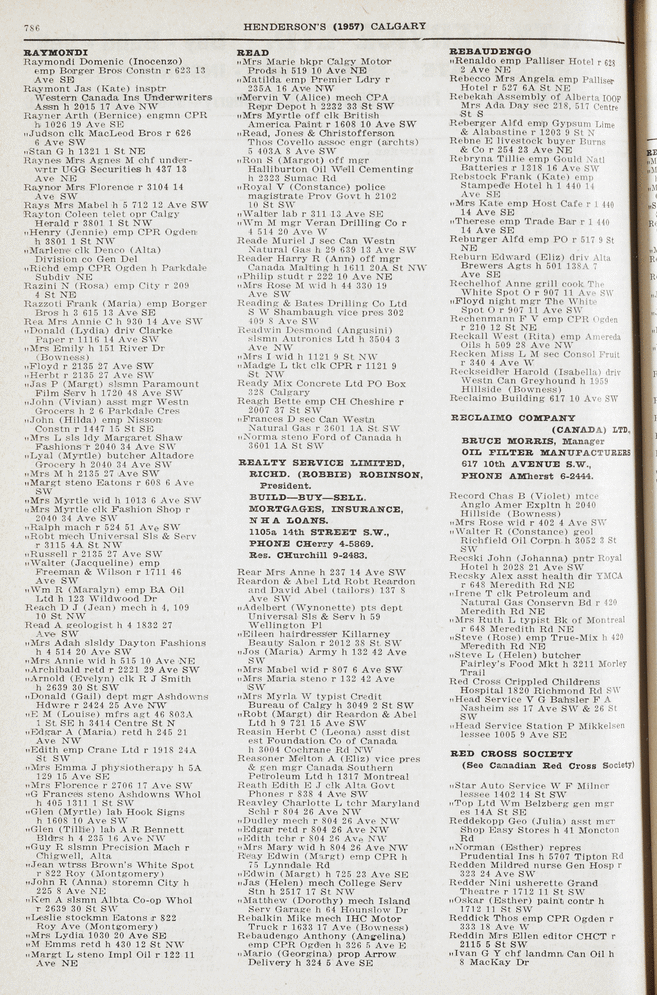 786
HENDERSON'S (1957) CALGARY
RAYMONDI
Raymondi Domenic (Inocenzo)
emp Borger Bros Constn r 623 13
Ave SE
Raymont Jas (Kate) insptr
Western Canada Ins Underwriters
Assn h 2015 17 Ave NW
Rayner Arth (Bernice) engmn CPR
h 1026 19 Ave SE
„Judson clk MacLeod Bros r 626
6 Ave SW
„Stan G h 1321 1 St NE
Raynes Mrs Agnes M chf under-
wrtr UGG Securities h 437 13
Ave NE
Raynor Mrs Florence r 3104 14
Ave SW
Rays Mrs Mabel h 5 712 12 Ave SW
Rayton Coleen telet opr Calgy
Herald r 3801 1 St NW
„Henry (Jennie) emp CPR Ogden
h 3801 1 St NW
„Marlene clk Denco (Alta)
Division co Gen Del
„Richd emp CPR Ogden h Parkdale
Subdiv NE
Razini N (Rosa) emp City r 209
4 St NE
Razzoti Frank (Maria) emp Borger
Bros h 3 615 13 Ave SE
Rea Mrs Annie C h 930 14 Ave SW
„Donald (Lydia) driv Clarke
Paper r 1116 14 Ave SW
„Mrs Emily h 151 River Dr
(Bowness)
„Floyd r 2135 27 Ave SW
„Herbt r 2135 27 Ave SW
„Jas P (Margt) slsmn Paramount
Film Serv h 1720 48 Ave SW
„John (Vivian) asst mgr Westn
Grocers h 2 6 Parkdale Cres
„John (Hilda) emp Nisson
Constn r 1447 15 St SE
„Mrs L sls ldy Margaret Shaw
Fashions r 2040 34 Ave SW
„Lyal (Myrtle) butcher Altadore
Grocery h 2040 34 Ave SW
„Mrs M h 2135 27 Ave SW
„Margt steno Eatons r 608 6 Ave
SW
„Mrs Myrtle wid h 1013 6 Ave SW
„Mrs Myrtle clk Fashion Shop r
2040 34 Ave SW
„Ralph mach r 524 51 Ave SW
„Robt mech Universal Sls & Serv
r 3115 4A St NW
„Russell r 2135 27 Ave SW
„Walter (Jacqueline) emp
Freeman & Wilson r 1711 46
Ave SW
„Wm R (Maralyn) emp BA Oil
Ltd h 123 Wildwood Dr
Reach D J (Jean) mech h 4, 109
10 St NW
Read A geologist h 4 1832 27
Ave SW
„Mrs Adah slsldy Dayton Fashions
h 4 514 20 Ave SW
„Mrs Annie wid h 515 10 Ave NE
„Archibald retd r 2221 29 Ave SW
„Arnold (Evelyn) clk R J Smith
h 2639 30 St SW
„Donald (Gail) dept mgr Ashdowns
Hdwre r 2424 25 Ave NW
„E M (Louise) mfrs agt 46 803A
1 St SE h 3414 Centre St N
„Edgar A (Maria) retd h 245 21
Ave NW
„Edith emp Crane Ltd r 1918 24A
St SW
„Mrs Emma J physiotherapy h 5A
129 15 Ave SE
„Mrs Florence r 2706 17 Ave SW
„G Frances steno Ashdowns Whol
h 405 1311 1 St SW
„Glen (Myrtle) lab Hook Signs
h 1608 10 Ave SW
„Glen (Tillie) lab A R Bennett
Bldrs h 4 235 16 Ave NW
„Guy R slsmn Precision Mach r
Chigwell, Alta
„Jean wtrss Brown's White Spot
r 822 Roy (Montgomery)
„John R (Anna) storemn City h
225 8 Ave NE
„Ken A slsmn Albta Co-op Whol
r 2639 30 St SW
„Leslie stockmn Eatons r 822
Roy Ave (Montgomery)
„Mrs Lydia 1030 20 Ave SE
„M Emms retd h 430 12 St NW
„Margt L steno Impl Oil r 122 11
Ave NE
READ
„Mrs Marie bkpr Calgy Motor
Prods h 519 10 Ave NE
„Matilda emp Premier Ldry r
235A 16 Ave NW
„Mervin V (Alice) mech CPA
Repr Depot h 2232 33 St SW
„Mrs Myrtle off clk British
America Paint r 1608 10 Ave SW
„Read, Jones & Christofferson
Thos Covello assoc engr (archts)
5 403A 8 Ave SW
„Ron S (Margot) off mgr
Halliburton Oil Well Cementing
h 2323 Sumac Rd
„Royal V (Constance) police
magistrate Prov Govt h 2102
10 St SW
„Walter lab r 311 13 Ave SE
„Wm M mgr Veran Drilling Co r
4 514 20 Ave W
Reade Muriel J sec Can Westn
Natural Gas h 29 639 13 Ave SW
Reader Harry R (Ann) off mgr
Canada Malting h 1611 20A St NW
„Philip studt r 222 10 Ave NE
„Mrs Rose M wid h 44 330 19
Ave SW
Reading & Bates Drilling Co Ltd
S W Shambaugh vice pres 302
409 8 Ave SW
Readwin Desmond (Angusini)
slsmn Autronics Ltd h 3504 3
Ave NW
„Mrs I wid h 1121 9 St NW
„Madge L tkt clk CPR r 1121 9
St NW
Ready Mix Concrete Ltd PO Box
328 Calgary
Reagh Bette emp CH Cheshire r
2007 37 St SW
„Frances D sec Can Westn
Natural Gas r 3601 1A St SW
„Norma steno Ford of Canada h
3601 1A St SW
REALTY SERVICE LIMITED,
RICHD. (ROBBIE) ROBINSON,
President.
BUILD—BUY—SELL.
MORTGAGES, INSURANCE,
N H A LOANS.
1105a 14th STREET S.W.,
PHONE CHerry 4-5869.
Res. CHurchill 9-2483.
Rear Mrs Anne h 237 14 Ave SW
Reardon & Abel Ltd Robt Reardon
and David Abel (tailors) 137 8
Ave SW
„Adelbert (Wynonette) pts dept
Universal Sls & Serv h 59
Wellington Pl
„Eileen hairdresser Killarney
Beauty Salon r 2012 38 St SW
„Jos (Maria) Army h 132 42 Ave
SW
„Mrs Mabel wid r 807 6 Ave SW
„Mrs Maria steno r 132 42 Ave
SW
„Mrs Myrla W typist Credit
Bureau of Calgy h 3049 2 St SW
„Robt (Margt) dir Reardon & Abel
Ltd h 9 721 15 Ave SW
Reasin Herbt C (Leona) asst dist
est Foundation Co of Canada
h 3004 Cochrane Rd NW
Reasoner Melton A (Eliz) vice pres
& gen mgr Canada Southern
Petroleum Ltd h 1317 Montreal
Reath Edith E J clk Alta Govt
Phones r 838 4 Ave SW
Reavley Charlotte L tchr Maryland
Schl r 804 26 Ave NW
„Dudley mech r 804 26 Ave NW
„Edgar retd r 804 26 Ave NW
„Edith tchr r 804 26 Ave NW
„Mrs Mary wid h 804 26 Ave NW
Reay Edwin (Margt) emp CPR h
75 Lynndale Rd
„Edwin (Margt) h 725 23 Ave SE
„Jas (Helen) mech College Serv
Stn h 2517 17 St NW
„Matthew (Dorothy) mech Island
Serv Garage h 64 Hounslow Dr
Rebalkin Mike mech IHC Motor
Truck r 1633 17 Ave (Bowness)
Rebaudengo Anthony (Angelina)
emp CPR Ogden h 326 5 Ave E
„Mario (Georgina) prop Arrow
Delivery h 324 5 Ave SE
REBAUDENGO
„Renaldo emp Palliser Hotel r 628
2 Ave NE
Rebecco Mrs Angela emp Palliser
Hotel r 527 6A St NE
Rebekah Assembly of Alberta IOOF
Mrs Ada Day sec 218, 517 Centre
St S
Reberger Alfd emp Gypsum Lime
& Alabastine r 1203 9 St N
Rebne E livestock buyer Burns
& Co r 254 23 Ave NW
Rebryna Tillie emp Gould Natl
Batteries r 1318 16 Ave SW
Rebstock Frank (Kate) emp
Stampede Hotel h 1 440 14
Ave SE
„Mrs Kate emp Host Cafe r 1 440
14 Ave SE
„Therese emp Trade Bar r 1 440
14 Ave SE
Reburger Alfd emp PO r 517 9 St
NE
Reburn Edward (Eliz) driv Alta
Brewers Agts h 501 138A 7
Ave SE
Rechelhof Anne grill cook The
White Spot O r 907 11 Ave SW
„Floyd night mgr The White
Spot O r 907 11 Ave SW
Rechenmann P V emp CPR Ogden
r 210 12 St NE
Reckall West (Rita) emp Amereda
Oils h 509 28 Ave NW
Recken Miss L M sec Consol Fruit
r 340 4 Ave W
Reckseidler Harold (Isabella) driv
Westn Can Greyhound h 1959
Hillside (Bowness)
Reclaimo Building 617 10 Ave SW
RECLAIMO COMPANY
(CANADA) LTD,
BRUCE MORRIS, Manager
OIL FILTER MANUFACTURERS
617 10th AVENUE S.W.,
PHONE AMherst 6-2444.
Record Chas B (Violet) mtce
Anglo Amer Expltn h 2040
Hillside (Bowness)
„Mrs Rose wid r 402 4 Ave SW
„Walter R (Constance) geol
Richfield Oil Corpn h 3052 3 St
SW
Recski John (Johanna) pntr Royal
Hotel h 2028 21 Ave SW
Recsky Alex asst health dir YMCA
r 648 Meredith Rd NE
„Irene T clk Petroleum and
Natural Gas Conservn Bd r 420
Meredith Rd NE
„Mrs Ruth L typist Bk of Montreal
r 648 Meredith Rd NE
„Steve (Rose) emp True-Mix h 420
Meredith Rd NE
„Steve L (Helen) butcher
Fairley's Food Mkt h 3211 Morley
Trail
Red Cross Crippled Childrens
Hospital 1820 Richmond Rd SW
„Head Service V G Bahsler F A
Nasheim ss 17 Ave SW & 26 St
SW
„Head Service Station P Mikkelsen
lessee 1005 9 Ave SE
RED CROSS SOCIETY
(See Canadian Red Cross Society)
„Star Auto Service W F Milner
lessee 1402 14 St SW
„Top Ltd Wm Belzberg gen mgr
es 14A St SE
Reddekopp Geo (Julia) asst mgr
Shop Easy Stores h 41 Moncton
Rd
„Norman (Esther) repres
Prudential Ins h 5707 Tipton Rd
Redden Mildred nurse Gen Hosp r
323 24 Ave SW
Redder Nini usherette Grand
Theatre r 1712 11 St SW
„Oskar (Esther) paint contr h
1712 11 St SW
Reddick Thos emp CPR Ogden r
333 18 Ave W
Reddin Mrs Ellen editor CHCT r
2115 5 St SW
„Ivan G Y chf landmn Can Oil h
8 MacKay Dr